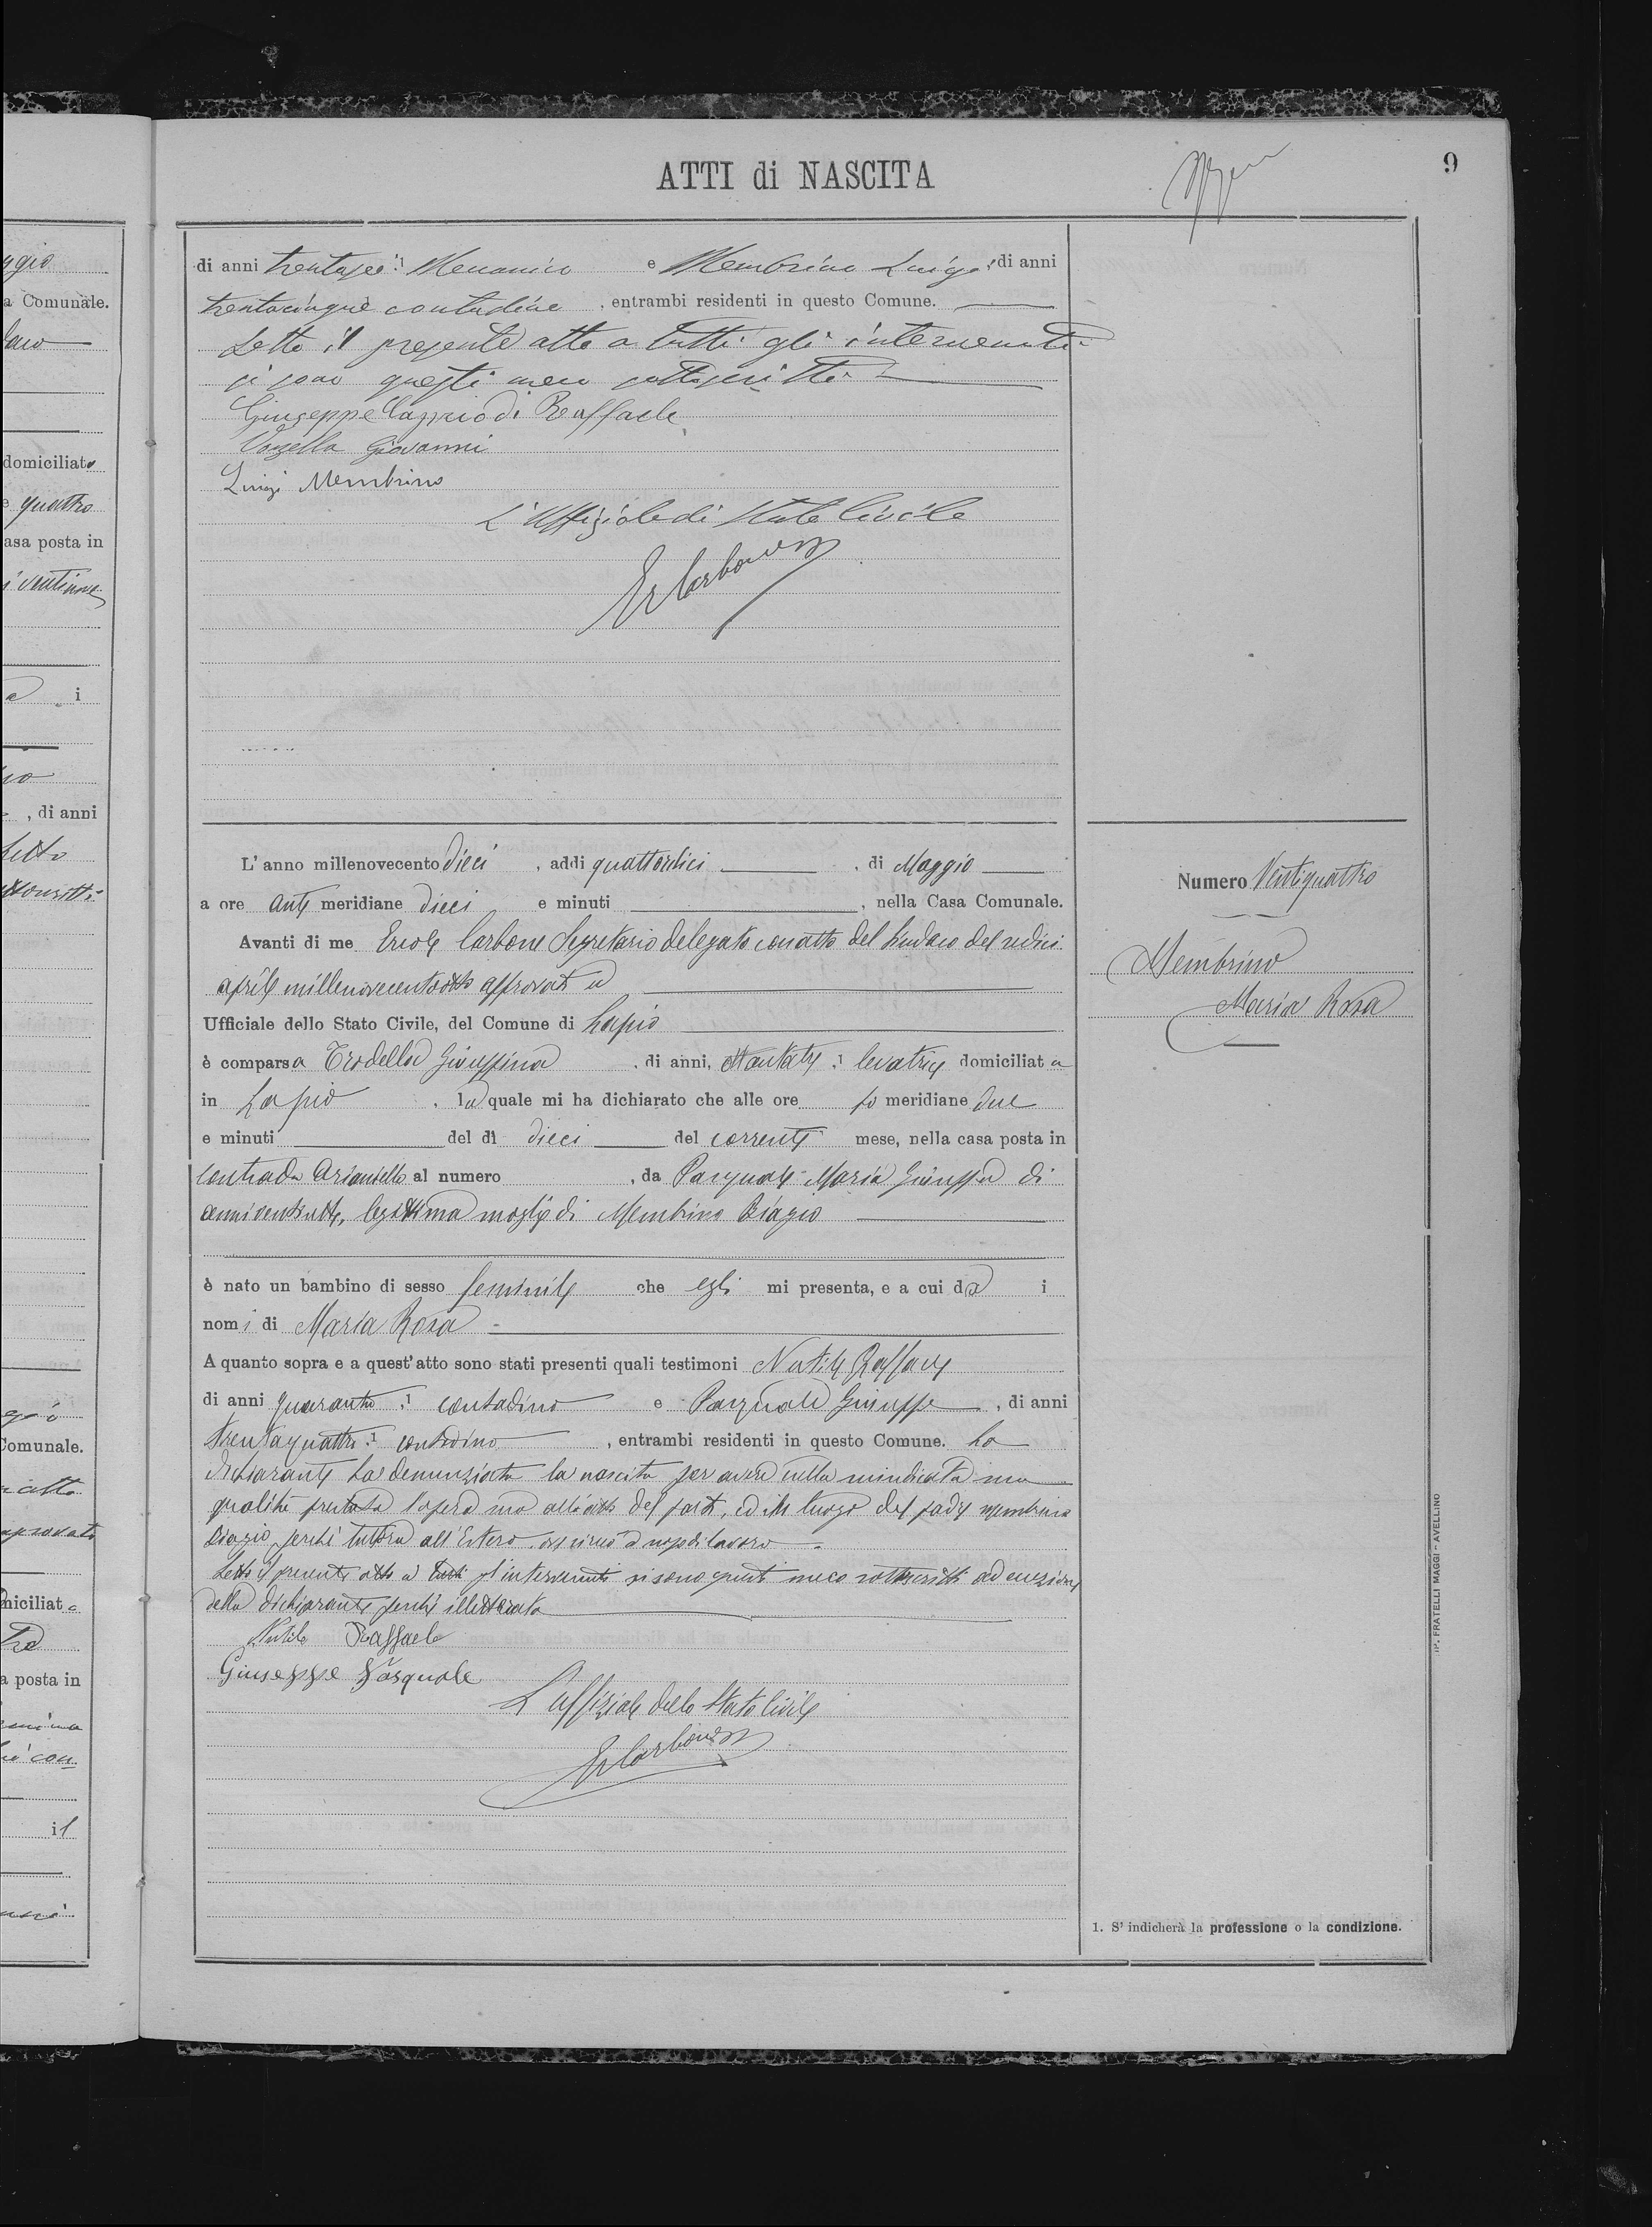 ATTI di NASCITA
9
di anni trentasei Meccanico e Membrino Luigi di anni
trentacinque contadino, entrambi residenti in questo Comune.
Letto il presente atto a tutti gli intervenuti
si sono questi meco sottoscritti
Giuseppe Caprio di Raffaele
Vozzella Giovanni
Luigi Membrino
L'Uffiziale di Stato Civile
L'anno millenovecento dieci, addi quattordici di Maggio
a ore anti meridiane dieci e minuti, nella Casa Comunale.
Avanti di me Ercole Carbone Segretario delegato con atto del Sindaco del sedici
aprile millenovecentootto approvato
Ufficiale dello Stato Civile, del Comune di Lapio
è comparsa Trodella Giuseppina, di anni, levatrice domiciliata
in Lapio, la quale mi ha dichiarato che alle ore po meridiane due
e minuti del dì dieci del corrente mese, nella casa posta in
Contrada Arianiello al numero, da Pasquale Maria Giuseppa di
anni, legittima moglie di Membrino Biagio
è nato un bambino di sesso feminile che egli mi presenta, e a cui dà i
nomi di Maria Rosa
A quanto sopra e a quest'atto sono stati presenti quali testimoni Nutile Raffaele
di anni quaranta contadino e Pasquale Giuseppe, di anni
trentaquattro contadino, entrambi residenti in questo Comune. La
dichiarante ha denunziata la nascita per avere nella suindicata sua
qualità prestata l'opera sua all'atto del parto, ed in luogo del padre Membrino
Biagio perchè tuttora all'Estero lavoro
Letto il presente atto a tutti gl'intervenuti si sono questi meco sottoscritti ad eccezione
della dichiarante perchè illetterata
Nutile Raffaele
Giuseppe Pasquale
L'uffiziale dello Stato Civile
Numero Ventiquattro
Membrino
Maria Rosa
1. S'indicherà la professione o la condizione.
TIP. FRATELLI MAGGI - AVELLINO
ggio
a Comunale.
domiciliato
e quattro
asa posta in
i
, di anni
Comunale.
approvato
miciliata
a posta in
il